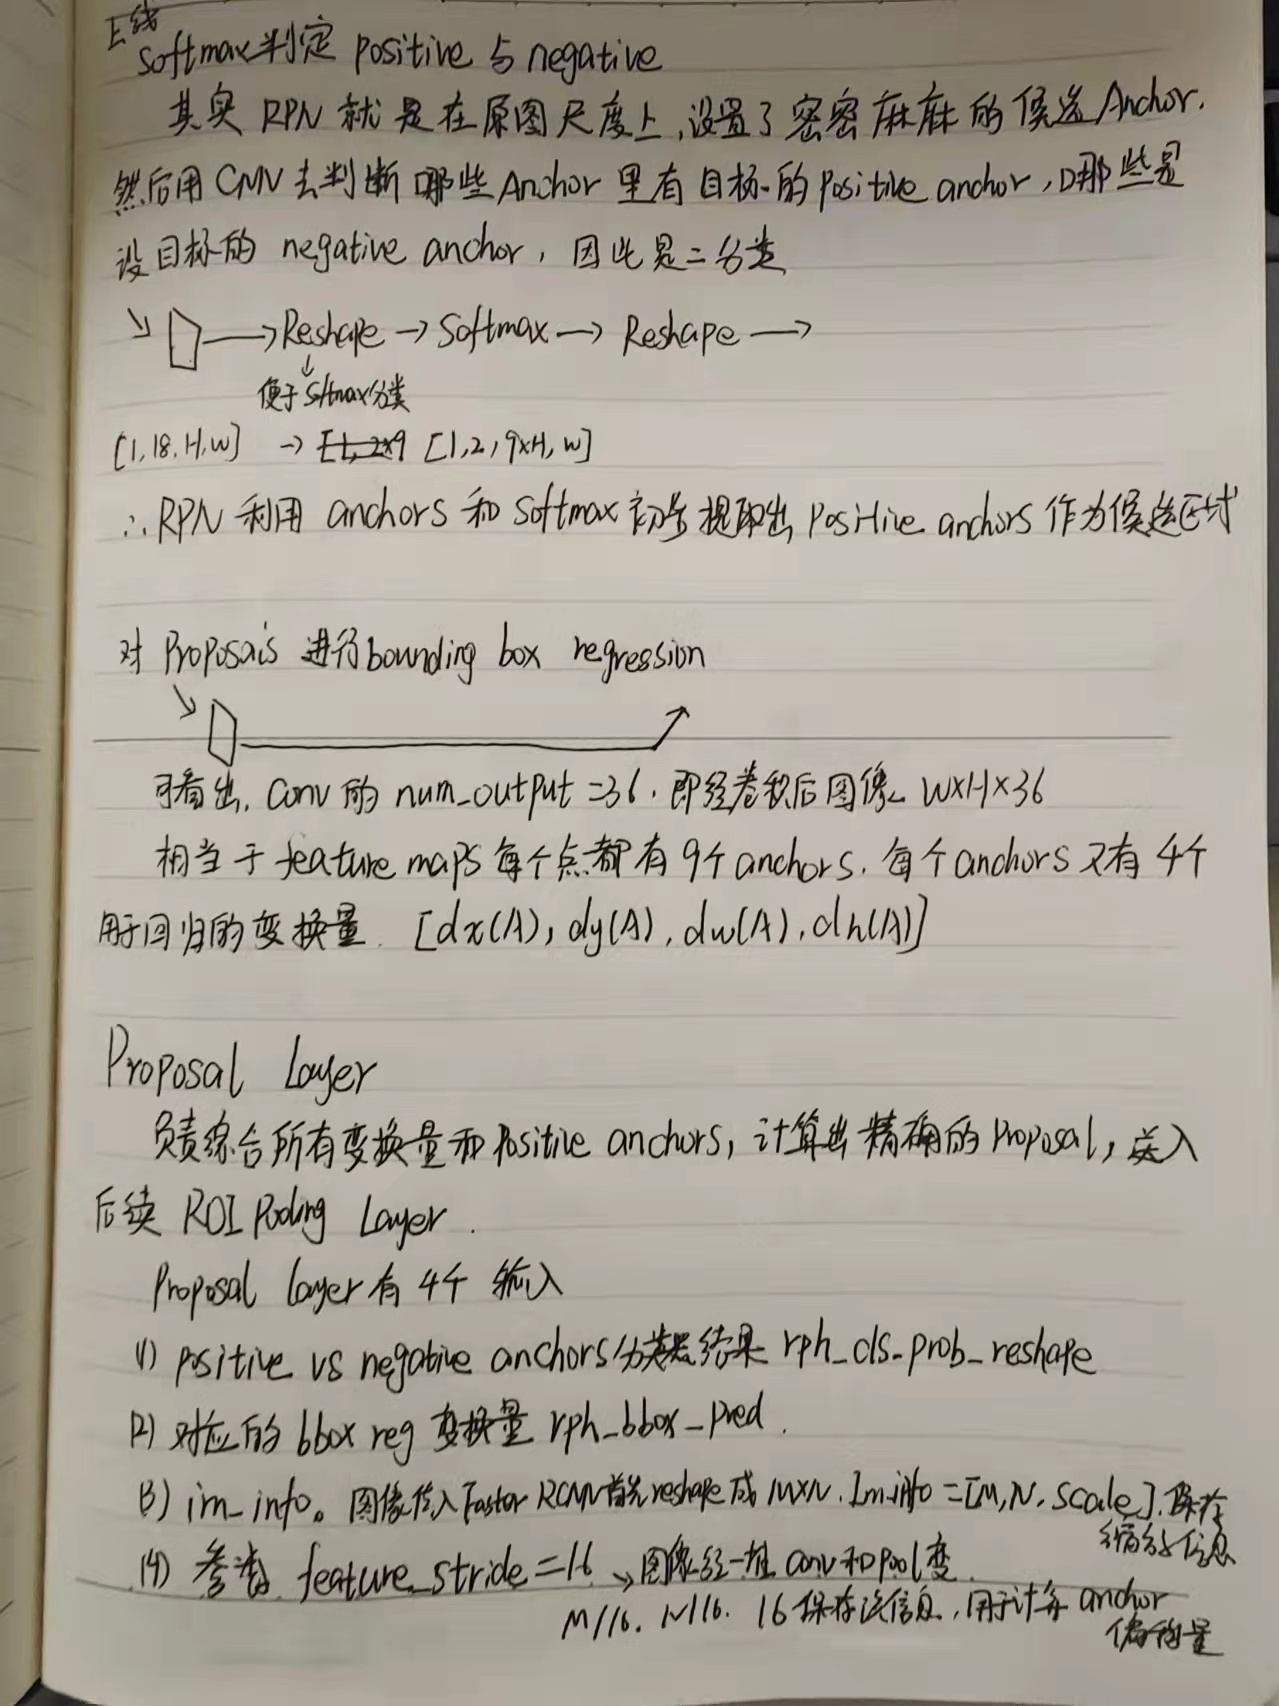 上线
softmax判定 positive 与 negative
其实 RPN 就是在原图尺度上,设置了密密麻麻的候选 Anchor.
然后用 CNN 去判断哪些 Anchor 里有目标的 positive anchor,哪些是
没目标的 negative anchor, 因此是二分类
↘ → Reshape → Softmax → Reshape →
↓
便于 Softmax分类
[1, 18, H, W] → [1, 2×9 [1, 2, 9×H, W]
∴ RPN 利用 anchors 和 softmax 初步提取出 Positive anchors 作为候选区域
对 Proposals 进行 bounding box regression
可看出, Conv 的 num_output = 36, 即经卷积后图像 W×H×36
相当于 feature maps 每个点都有 9个 anchors, 每个 anchors 又有 4个
用于回归的变换量. [dx(A), dy(A), dw(A), dh(A)]
Proposal Layer
负责综合所有变换量和 Positive anchors, 计算出精确的 Proposal, 送入
后续 ROI Pooling Layer.
Proposal layer 有 4个 输入
(1) positive vs negative anchors 分类器结果 rph_cls_prob_reshape
(2) 对应的 bbox reg 变换量 rph_bbox_pred.
(3) im_info。图像传入 Faster RCNN 首先 reshape 成 M×N. Im_info = [M, N, scale]. 保存
缩放信息
(4) 参数 feature_stride = 16 → 图像经一堆 conv 和 pool 变
M/16. N/16. 16 保存该信息, 用于计算 anchor
偏移量